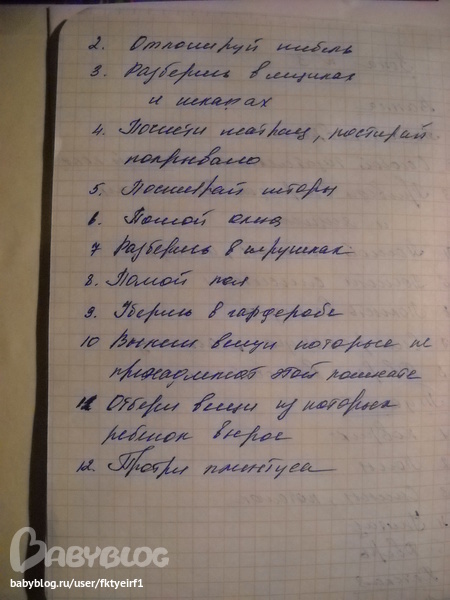 2. Отполируй мебель
3. Разберись в ящиках
и шкафах
4. Почисти матрац, постирай
покрывало
5. Постирай шторы
6. Помой окна
7 Разберись в игрушках
8. Помой пол
9. Уберись в гардеробе
10 Вынеси вещи которые не
пренадлежат этой комнате
12 Отбери вещи из которых
ребенок вырос
12. Протри плинтуса
BABYBLOG
babyblog.ru/user/fktyeirf1